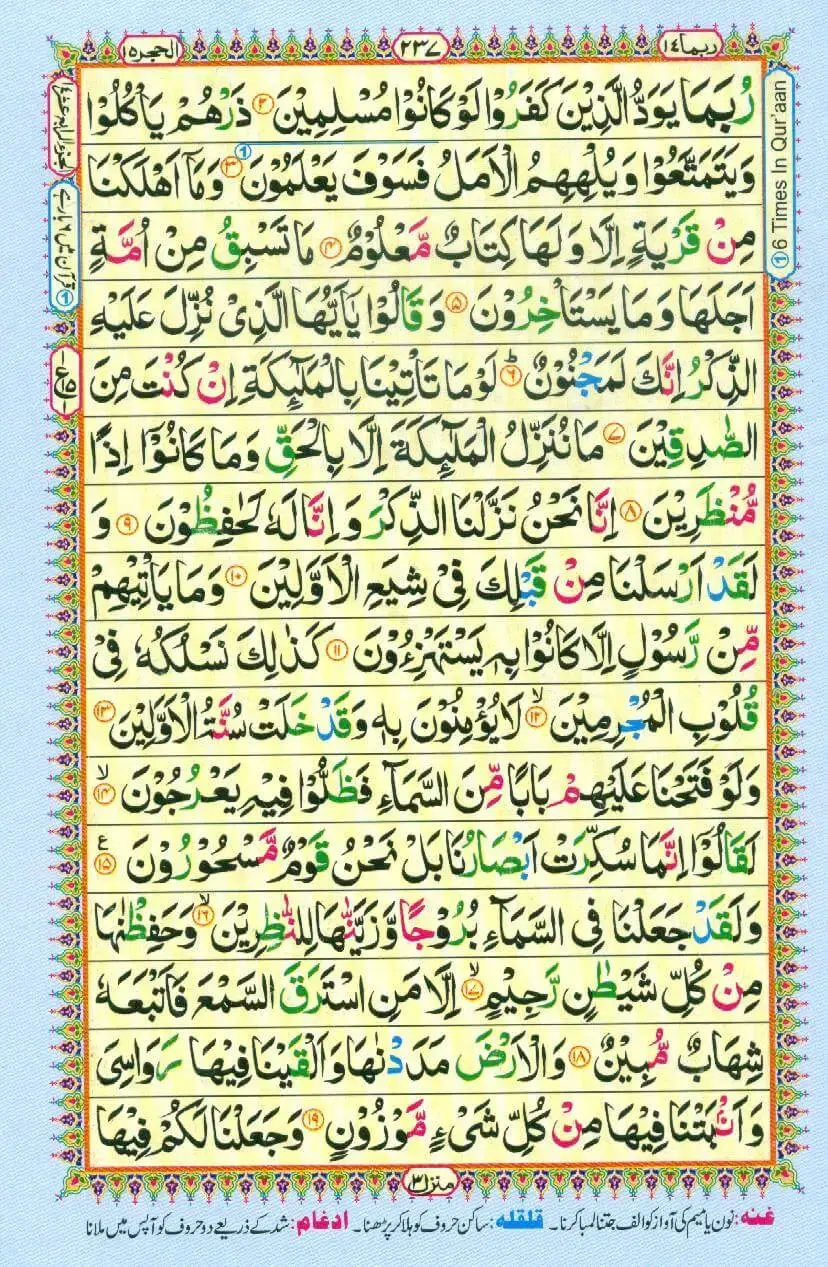 ربما ١٤
٢٣٧
الحجر ١٥
رُبَمَا يَوَدُّ الَّذِيْنَ كَفَرُوْا لَوْ كَانُوْا مُسْلِمِيْنَ ② ذَرْهُمْ يَاْكُلُوْا
وَيَتَمَتَّعُوْا وَيُلْهِهِمُ الْاَمَلُ فَسَوْفَ يَعْلَمُوْنَ ③ وَمَاۤ اَهْلَكْنَا
مِنْ قَرْيَةٍ اِلَّا وَلَهَا كِتَابٌ مَّعْلُوْمٌ ④ مَا تَسْبِقُ مِنْ اُمَّةٍ
اَجَلَهَا وَمَا يَسْتَاْخِرُوْنَ ⑤ وَقَالُوْا يٰۤاَيُّهَا الَّذِيْ نُزِّلَ عَلَيْهِ
الذِّكْرُ اِنَّكَ لَمَجْنُوْنٌ ⑥ؕ لَوْ مَا تَاْتِيْنَا بِالْمَلٰٓئِكَةِ اِنْ كُنْتَ مِنَ
الصّٰدِقِيْنَ ⑦ مَا نُنَزِّلُ الْمَلٰٓئِكَةَ اِلَّا بِالْحَقِّ وَمَا كَانُوْۤا اِذًا
مُّنْظَرِيْنَ ⑧ اِنَّا نَحْنُ نَزَّلْنَا الذِّكْرَ وَاِنَّا لَهٗ لَحٰفِظُوْنَ ⑨ وَ
لَقَدْ اَرْسَلْنَا مِنْ قَبْلِكَ فِيْ شِيَعِ الْاَوَّلِيْنَ ⑩ وَمَا يَاْتِيْهِمْ
مِّنْ رَّسُوْلٍ اِلَّا كَانُوْا بِهٖ يَسْتَهْزِءُوْنَ ⑪ كَذٰلِكَ نَسْلُكُهٗ فِيْ
قُلُوْبِ الْمُجْرِمِيْنَ ⑫ۙ لَا يُؤْمِنُوْنَ بِهٖ وَقَدْ خَلَتْ سُنَّةُ الْاَوَّلِيْنَ ⑬
وَلَوْ فَتَحْنَا عَلَيْهِمْ بَابًا مِّنَ السَّمَآءِ فَظَلُّوْا فِيْهِ يَعْرُجُوْنَ ⑭ۙ
لَقَالُوْۤا اِنَّمَا سُكِّرَتْ اَبْصَارُنَا بَلْ نَحْنُ قَوْمٌ مَّسْحُوْرُوْنَ ⑮ ع
وَلَقَدْ جَعَلْنَا فِي السَّمَآءِ بُرُوْجًا وَّزَيَّنّٰهَا لِلنّٰظِرِيْنَ ⑯ۙ وَحَفِظْنٰهَا
مِنْ كُلِّ شَيْطٰنٍ رَّجِيْمٍ ⑰ۙ اِلَّا مَنِ اسْتَرَقَ السَّمْعَ فَاَتْبَعَهٗ
شِهَابٌ مُّبِيْنٌ ⑱ وَالْاَرْضَ مَدَدْنٰهَا وَاَلْقَيْنَا فِيْهَا رَوَاسِيَ
وَاَنْۢبَتْنَا فِيْهَا مِنْ كُلِّ شَيْءٍ مَّوْزُوْنٍ ⑲ وَجَعَلْنَا لَكُمْ فِيْهَا
① 6 Times In Qur'aan
قرآن میں ٦ بار ہے ①
منزل ٣
غنہ: نون یا میم کی آواز کو الف جتنا لمبا کرنا۔ قلقلہ: ساکن حروف کو ہلا کر پڑھنا۔ ادغام: شد کے ذریعے دو حروف کو آپس میں ملانا